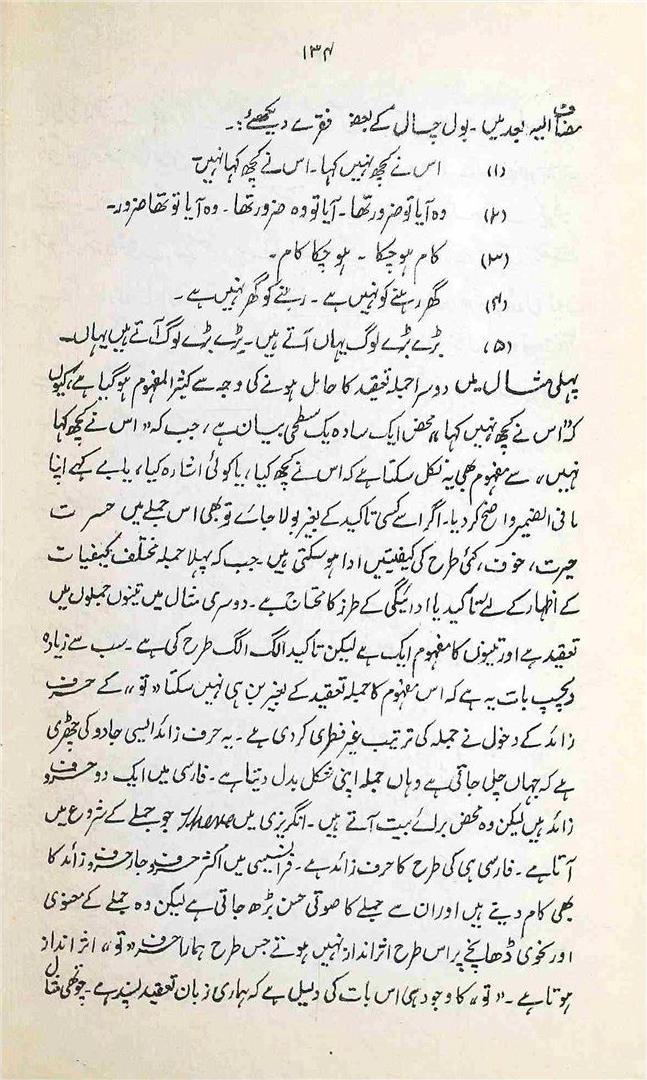 ۱۳۴
مضاف الیہ بعد میں۔ بول چال کے بعض فقرے دیکھئے:۔
(۱) اس نے کچھ نہیں کہا۔ اس نے کچھ کہا نہیں۔
(۲) وہ آیا تو ضرور تھا۔ آیا تو وہ ضرور تھا۔ وہ آیا تو تھا ضرور۔
(۳) کام ہو چکا ۔ ہو چکا کام۔
(۴) گھر رہنے کو نہیں ہے ۔ رہنے کو گھر نہیں ہے ۔
(۵) بڑے بڑے لوگ یہاں آتے ہیں۔ بڑے بڑے لوگ آتے ہیں یہاں۔
پہلی مثال میں دوسرا جملہ تعقید کا حامل ہونے کی وجہ سے کثیر المفہوم ہو گیا ہے، کیوں
کہ "اس نے کچھ نہیں کہا" محض ایک سادہ یک سطحی بیان ہے، جب کہ "اس نے کچھ کہا
نہیں" سے مفہوم بھی یہ نکل سکتا ہے کہ اس نے کچھ کیا، یا کوئی اشارہ کیا، یا بے کہے اپنا
ما فی الضمیر واضح کر دیا۔ اگر اسے کسی تاکید کے بغیر بولا جائے تو بھی اس جملے میں حسرت
حیرت، خوف، کئی طرح کی کیفیتیں ادا ہو سکتی ہیں۔ جب کہ پہلا جملہ مختلف کیفیات
کے اظہار کے لئے تاکید یا ادائیگی کے طرز کا محتاج ہے۔ دوسری مثال میں تینوں جملوں میں
تعقید ہے اور تینوں کا مفہوم ایک ہے لیکن تاکید الگ الگ طرح کی ہے۔ سب سے زیادہ
دلچسپ بات یہ ہے کہ اس مفہوم کا جملہ تعقید کے بغیر بن ہی نہیں سکتا "تو" کے حرف
زائد کے دخول نے جملہ کی ترتیب غیر فطری کر دی ہے۔ یہ حرف زائد ایسی جادو کی چھڑی
ہے کہ جہاں چلی جاتی ہے وہاں جملہ اپنی شکل بدل دیتا ہے۔ فارسی میں ایک دو حروف
زائد ہیں لیکن وہ محض برائے بیت آتے ہیں۔ انگریزی میں There جو جملے کے شروع میں
آتا ہے۔ فارسی ہی کی طرح کا حرف زائد ہے۔ فرانسیسی میں اکثر حروف جار حروف زائد کا
بھی کام دیتے ہیں اور ان سے جملے کا صوتی حسن بڑھ جاتی ہے لیکن وہ جملے کے معنوی
اور نحوی ڈھانچے پر اس طرح اثر انداز نہیں ہوتے جس طرح ہمارا حرف "تو" اثر انداز
ہوتا ہے۔ "تو" کا وجود ہی اس بات کی دلیل ہے کہ ہماری زبان تعقید پسند ہے۔ چوتھی مثال